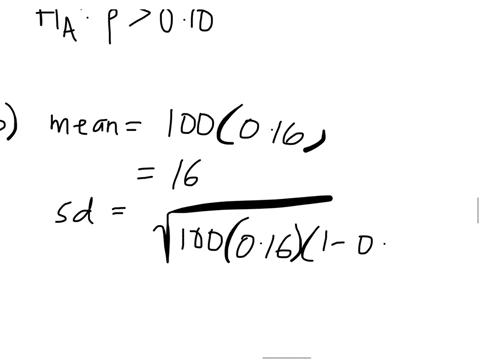 HA: p > 0.10
b) mean = 100(0.16)
= 16
sd = √100(0.16)(1-0.